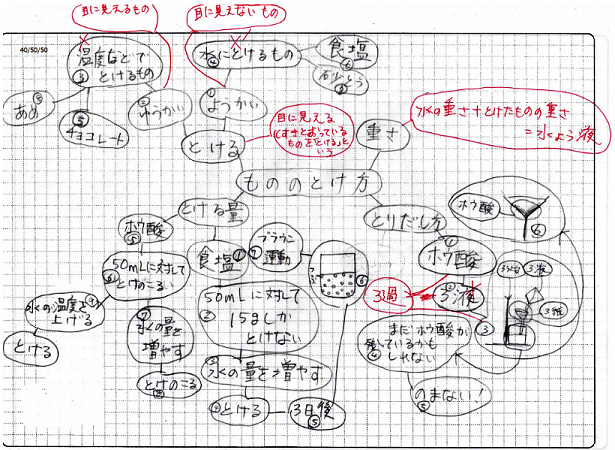 目に見えるもの
目に見えないもの
40/50/50
温度などで
とけるもの
③
水にとけるもの
④
食塩
⑤
さとう
⑤
あめ
⑤
チョコレート
⑤
②ゆうかい
①ようかい
とける
目に見える
(すきとおっている
ものを「とける」と
いう
重さ
水の重さ+とけたものの重さ
=水よう液
もののとけ方
とける量
とりだし方
ホウ酸
⑤
食塩
①
ブラウン
運動
⑦
⑥
50mLに対して
とけのこるい
⑥
水の温度を
上げる
とける
⑦
水の量を
増やす
とけのこる
⑧
50mLに対して
②
15gしか
とけない
③
水の量を増やす
④とける
3日後
⑤
①
ホウ酸
②
3液
3過
ホウ酸
⑥
3液
3紙
③
まだホウ酸が
残っているかも
しれない
④
のまない!
⑤